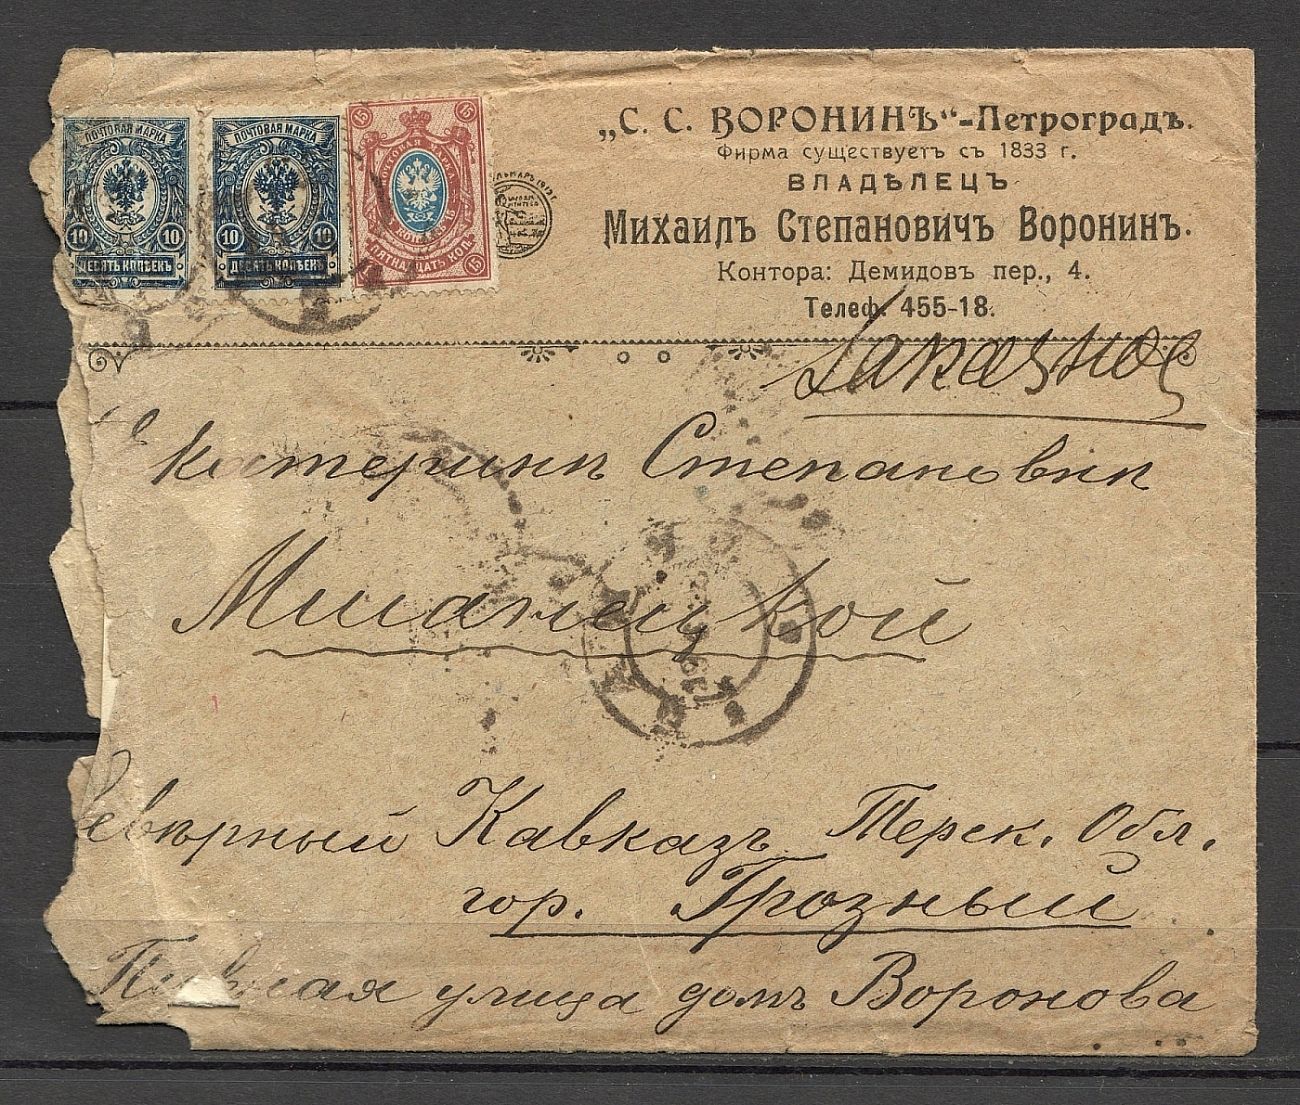 „С. С. ВОРОНИНЪ“-Петроградъ.
Фирма существуетъ съ 1833 г.
ВЛАДѢЛЕЦЪ
Михаилъ Степановичъ Воронинъ.
Контора: Демидовъ пер., 4.
Телеф. 455-18.
ПОЧТОВАЯ МАРКА
10 10
ДЕСЯТЬ КОПѢЕКЪ
ПОЧТОВАЯ МАРКА
10 10
ДЕСЯТЬ КОПѢЕКЪ
15 15
ПОЧТОВАЯ МАРКА
15 КОПѢЕКЪ 15
ПЯТНАДЦАТЬ КОП.
15 15
Заказное
Екатеринѣ Степановнѣ
Сѣверный Кавказъ Терск. Обл.
гор. Грозный
улица домъ Воронова